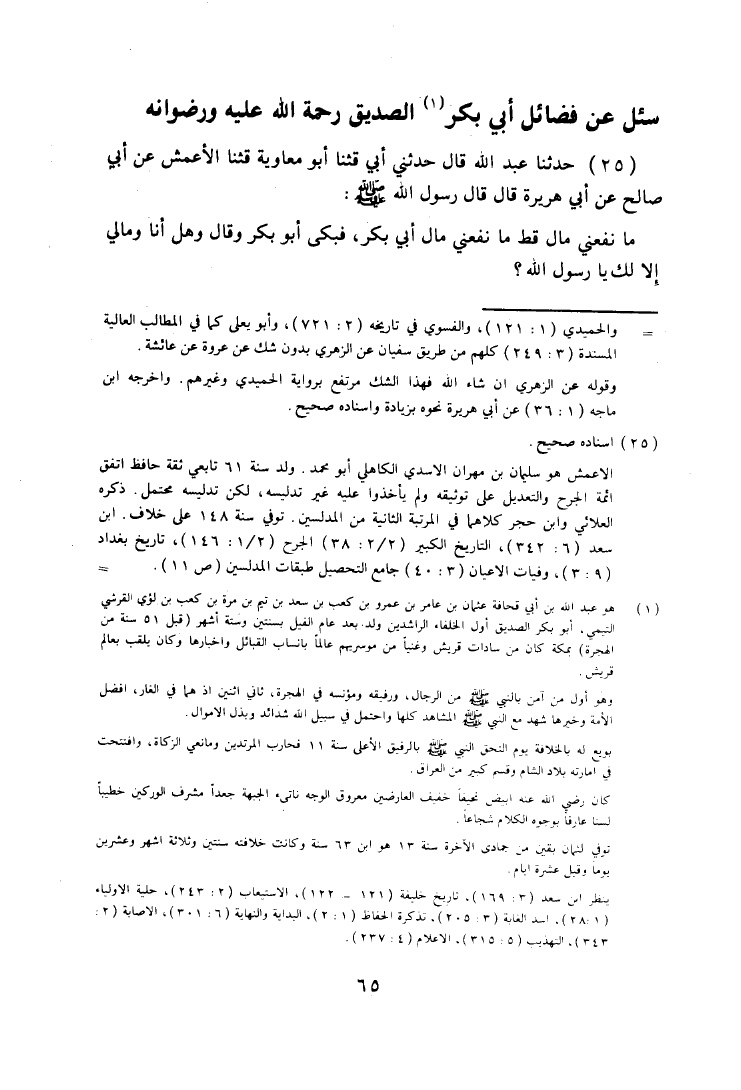 سئل عن فضائل أبي بكر(١) الصديق رحمة الله عليه ورضوانه
(٢٥) حدثنا عبد الله قال حدثني أبي قثنا أبو معاوية قثنا الأعمش عن أبي
صالح عن أبي هريرة قال قال رسول الله ﷺ :
ما نفعني مال قط ما نفعني مال أبي بكر، فبكى أبو بكر وقال وهل أنا ومالي
إلا لك يا رسول الله ؟
= والحميدي (١ : ١٢١)، والفسوي في تاريخه (٢ : ٧٢١)، وأبو يعلى كما في المطالب العالية
المسندة (٣ : ٢٤٩) كلهم من طريق سفيان عن الزهري بدون شك عن عروة عن عائشة .
وقوله عن الزهري ان شاء الله فهذا الشك مرتفع برواية الحميدي وغيرهم. واخرجه ابن
ماجه (١ : ٣٦) عن أبي هريرة نحوه بزيادة واسناده صحيح.
(٢٥) اسناده صحيح.
الاعمش هو سليمان بن مهران الاسدي الكاهلي أبو محمد. ولد سنة ٦١ تابعي ثقة حافظ اتفق
ائمة الجرح والتعديل على توثيقه ولم يأخذوا عليه غير تدليسه، لكن تدليسه محتمل. ذكره
العلائي وابن حجر كلاهما في المرتبة الثانية من المدلسين. توفي سنة ١٤٨ على خلاف. ابن
سعد (٦ : ٣٤٢)، التاريخ الكبير (٢/٢ : ٣٨) الجرح (١/٢ : ١٤٦)، تاريخ بغداد
(٩ : ٣)، وفيات الاعيان (٣ : ٤٠) جامع التحصيل طبقات المدلسين (ص ١١). =
(١) هو عبد الله بن أبي قحافة عثمان بن عامر بن عمرو بن كعب بن سعد بن تيم بن مرة بن كعب بن لؤي القرشي
التيمي. أبو بكر الصديق أول الخلفاء الراشدين ولد بعد عام الفيل بسنتين وستة أشهر (قبل ٥١ سنة من
الهجرة) بمكة كان من سادات قريش وغنياً من موسريهم عالماً بانساب القبائل واخبارها وكان يلقب بعالم
قريش.
وهو أول من آمن بالنبي ﷺ من الرجال، ورفيقه ومؤنسه في الهجرة، ثاني اثنين اذ هما في الغار، افضل
الأمة وخيرها شهد مع النبي ﷺ المشاهد كلها واحتمل في سبيل الله شدائد وبذل الاموال.
بويع له بالخلافة يوم التحق النبي ﷺ بالرفيق الأعلى سنة ١١ فحارب المرتدين ومانعي الزكاة، وافتتحت
في امارته بلاد الشام وقسم كبير من العراق.
كان رضي الله عنه ابيض نحيفاً خفيف العارضين معروق الوجه ناتىء الجبهة جعداً مشرف الوركين خطيباً
لسنا عارفاً بوجوه الكلام شجاعا.
توفي لثمان بقين من جمادى الآخرة سنة ١٣ هو ابن ٦٣ سنة وكانت خلافته سنتين وثلاثة اشهر وعشرين
يوما وقيل عشرة ايام.
ينظر ابن سعد (٣ : ١٦٩)، تاريخ خليفة (١٢١ - ١٢٢)، الاستيعاب (٢ : ٢٤٣)، حلية الاولياء
(١ : ٢٨)، اسد الغابة (٣ : ٢٠٥)، تذكرة الحفاظ (١ : ٢)، البداية والنهاية (٦ : ٣٠١)، الاصابة (٢ :
٣٤٣)، التهذيب (٥ : ٣١٥)، الاعلام (٤ : ٢٣٧).
٦٥